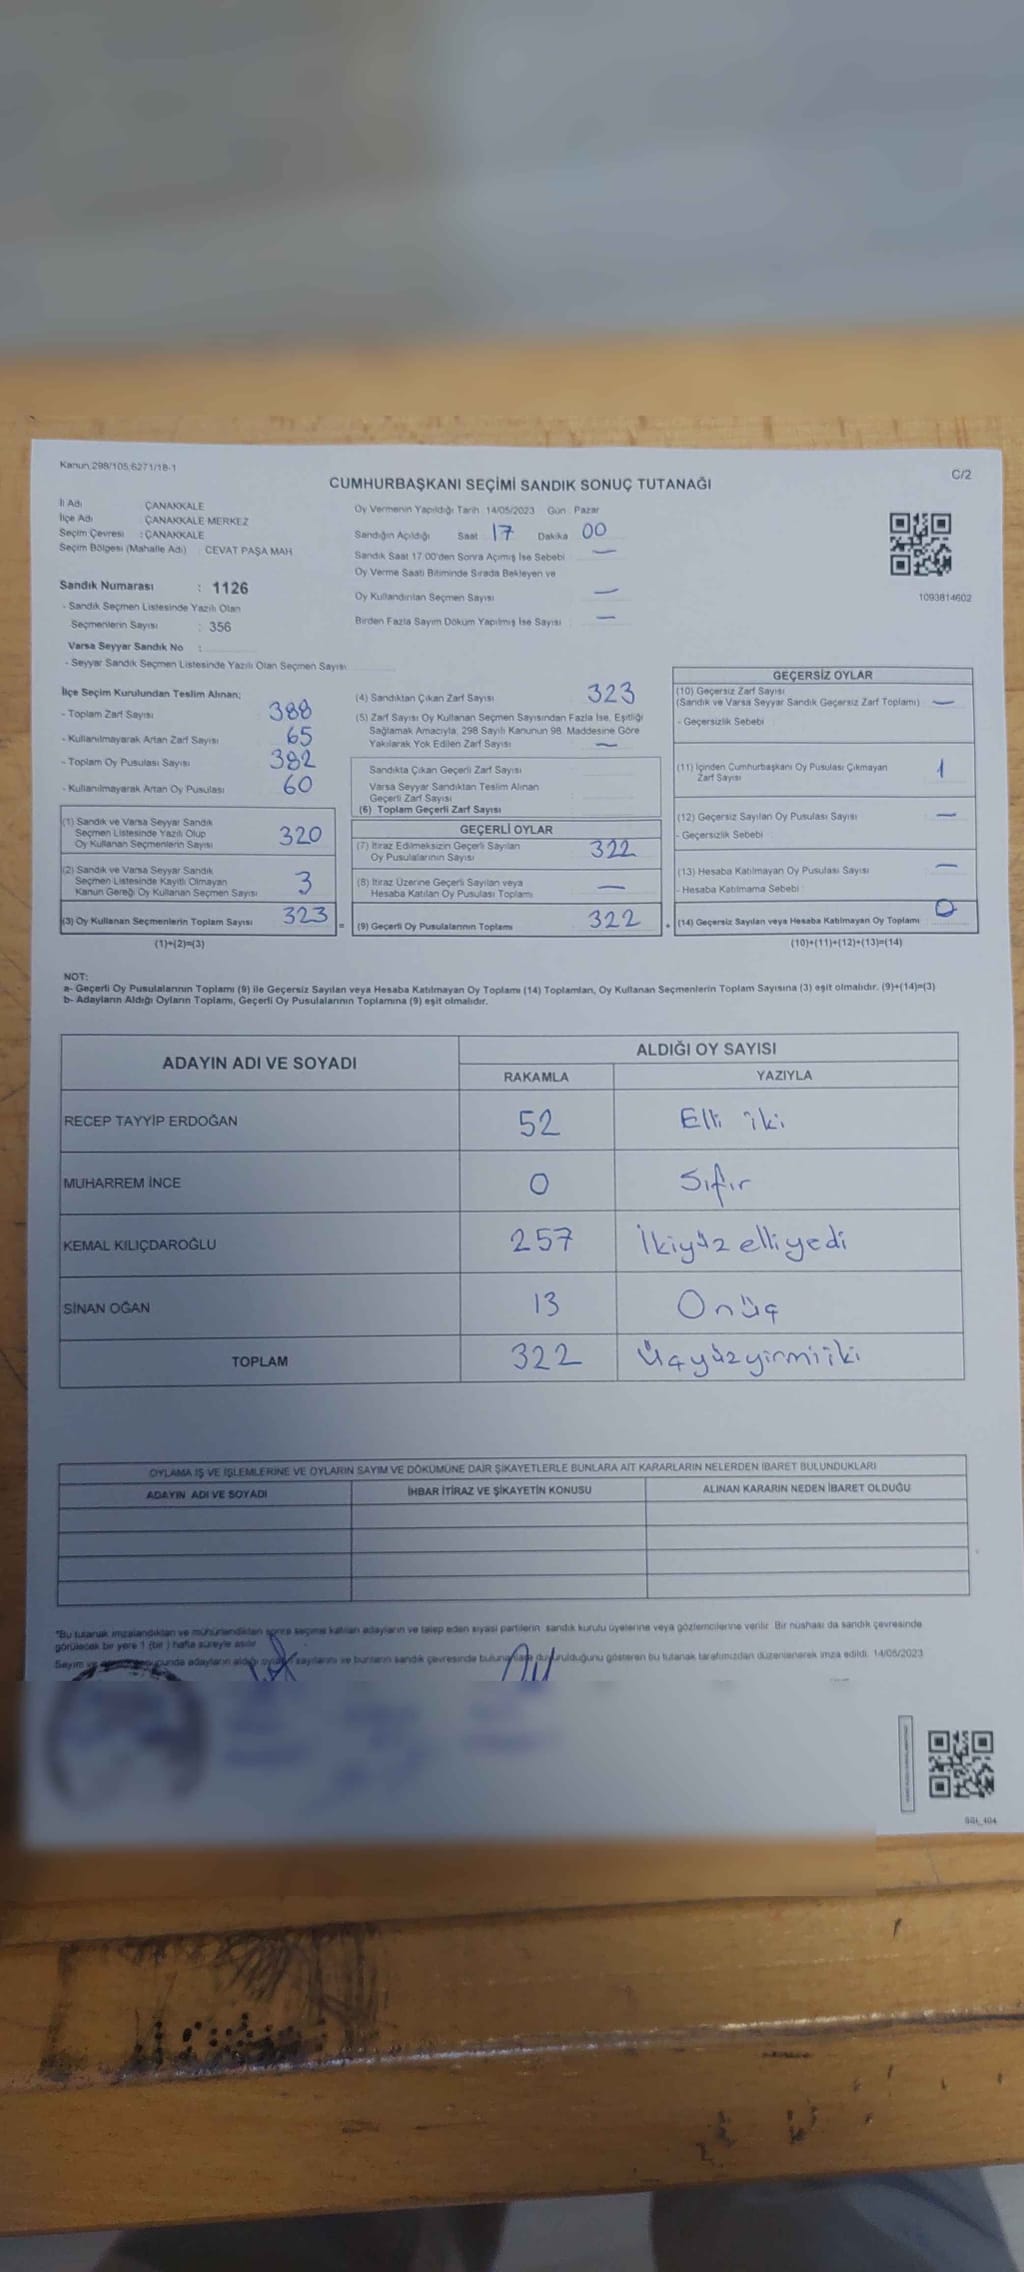 Kanun 298/105,6271/18-1
C/2
CUMHURBAŞKANI SEÇİMİ SANDIK SONUÇ TUTANAĞI
İl Adı ÇANAKKALE
İlçe Adı ÇANAKKALE MERKEZ
Seçim Çevresi : ÇANAKKALE
Seçim Bölgesi (Mahalle Adı) : CEVAT PAŞA MAH
Sandık Numarası : 1126
- Sandık Seçmen Listesinde Yazılı Olan
Seçmenlerin Sayısı : 356
Varsa Seyyar Sandık No :
- Seyyar Sandık Seçmen Listesinde Yazılı Olan Seçmen Sayısı
Oy Vermenin Yapıldığı Tarih 14/05/2023 Gün : Pazar
Sandığın Açıldığı Saat 17 Dakika 00
Sandık Saat 17.00'den Sonra Açılmış İse Sebebi —
Oy Verme Saati Bitiminde Sırada Bekleyen ve
Oy Kullandırılan Seçmen Sayısı —
Birden Fazla Sayım Döküm Yapılmış İse Sayısı —
1093814602
İlçe Seçim Kurulundan Teslim Alınan;
- Toplam Zarf Sayısı 388
- Kullanılmayarak Artan Zarf Sayısı 65
- Toplam Oy Pusulası Sayısı 382
- Kullanılmayarak Artan Oy Pusulası 60
(1) Sandık ve Varsa Seyyar Sandık
Seçmen Listesinde Yazılı Olup
Oy Kullanan Seçmenlerin Sayısı 320
(2) Sandık ve Varsa Seyyar Sandık
Seçmen Listesinde Kayıtlı Olmayan
Kanun Gereği Oy Kullanan Seçmen Sayısı 3
(3) Oy Kullanan Seçmenlerin Toplam Sayısı 323 =
(1)+(2)=(3)
(4) Sandıktan Çıkan Zarf Sayısı 323
(5) Zarf Sayısı Oy Kullanan Seçmen Sayısından Fazla İse, Eşitliği
Sağlamak Amacıyla, 298 Sayılı Kanunun 98. Maddesine Göre
Yakılarak Yok Edilen Zarf Sayısı —
Sandıkta Çıkan Geçerli Zarf Sayısı
Varsa Seyyar Sandıktan Teslim Alınan
Geçerli Zarf Sayısı
(6) Toplam Geçerli Zarf Sayısı
GEÇERLİ OYLAR
(7) İtiraz Edilmeksizin Geçerli Sayılan
Oy Pusulalarının Sayısı 322
(8) İtiraz Üzerine Geçerli Sayılan veya
Hesaba Katılan Oy Pusulası Toplamı —
(9) Geçerli Oy Pusulalarının Toplamı 322 +
GEÇERSİZ OYLAR
(10) Geçersiz Zarf Sayısı
(Sandık ve Varsa Seyyar Sandık Geçersiz Zarf Toplamı) —
- Geçersizlik Sebebi
(11) İçinden Cumhurbaşkanı Oy Pusulası Çıkmayan
Zarf Sayısı 1
(12) Geçersiz Sayılan Oy Pusulası Sayısı —
- Geçersizlik Sebebi
(13) Hesaba Katılmayan Oy Pusulası Sayısı —
- Hesaba Katılmama Sebebi
(14) Geçersiz Sayılan veya Hesaba Katılmayan Oy Toplamı 0
(10)+(11)+(12)+(13)=(14)
NOT:
a- Geçerli Oy Pusulalarının Toplamı (9) ile Geçersiz Sayılan veya Hesaba Katılmayan Oy Toplamı (14) Toplamları, Oy Kullanan Seçmenlerin Toplam Sayısına (3) eşit olmalıdır. (9)+(14)=(3)
b- Adayların Aldığı Oyların Toplamı, Geçerli Oy Pusulalarının Toplamına (9) eşit olmalıdır.
ADAYIN ADI VE SOYADI ALDIĞI OY SAYISI
RAKAMLA YAZIYLA
RECEP TAYYİP ERDOĞAN 52 Elli iki
MUHARREM İNCE 0 Sıfır
KEMAL KILIÇDAROĞLU 257 İkiyüz elliyedi
SİNAN OĞAN 13 Onüç
TOPLAM 322 Üçyüzyirmiiki
OYLAMA İŞ VE İŞLEMLERİNE VE OYLARIN SAYIM VE DÖKÜMÜNE DAİR ŞİKAYETLERLE BUNLARA AİT KARARLARIN NELERDEN İBARET BULUNDUKLARI
ADAYIN ADI VE SOYADI İHBAR İTİRAZ VE ŞİKAYETİN KONUSU ALINAN KARARIN NEDEN İBARET OLDUĞU
*Bu tutanak imzalandıktan ve mühürlendikten sonra seçime katılan adayların ve talep eden siyasi partilerin sandık kurulu üyelerine veya gözlemcilerine verilir. Bir nüshası da sandık çevresinde
görülecek bir yere 1 (bir) hafta süreyle asılır.
Sayım ve adayların aldığı oyların sayılarını ve bunların sandık çevresinde duyurulduğunu gösteren bu tutanak tarafımızdan düzenlenerek imza edildi. 14/05/2023